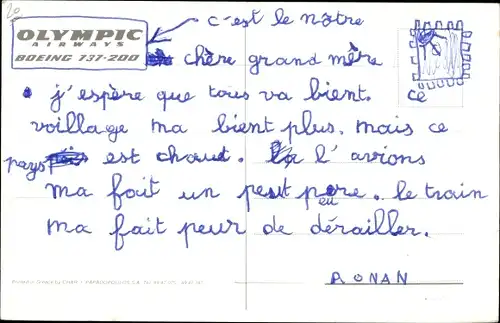 20
c'est le nôtre
OLYMPIC
AIRWAYS
BOEING 737-200
chère grand mère
j'espère que tous va bient. ce
voillage ma bient plus, mais ce
pays est chaud. l'avions
ma fait un peut peure. le train
ma fait peur de dérailler.
RONAN